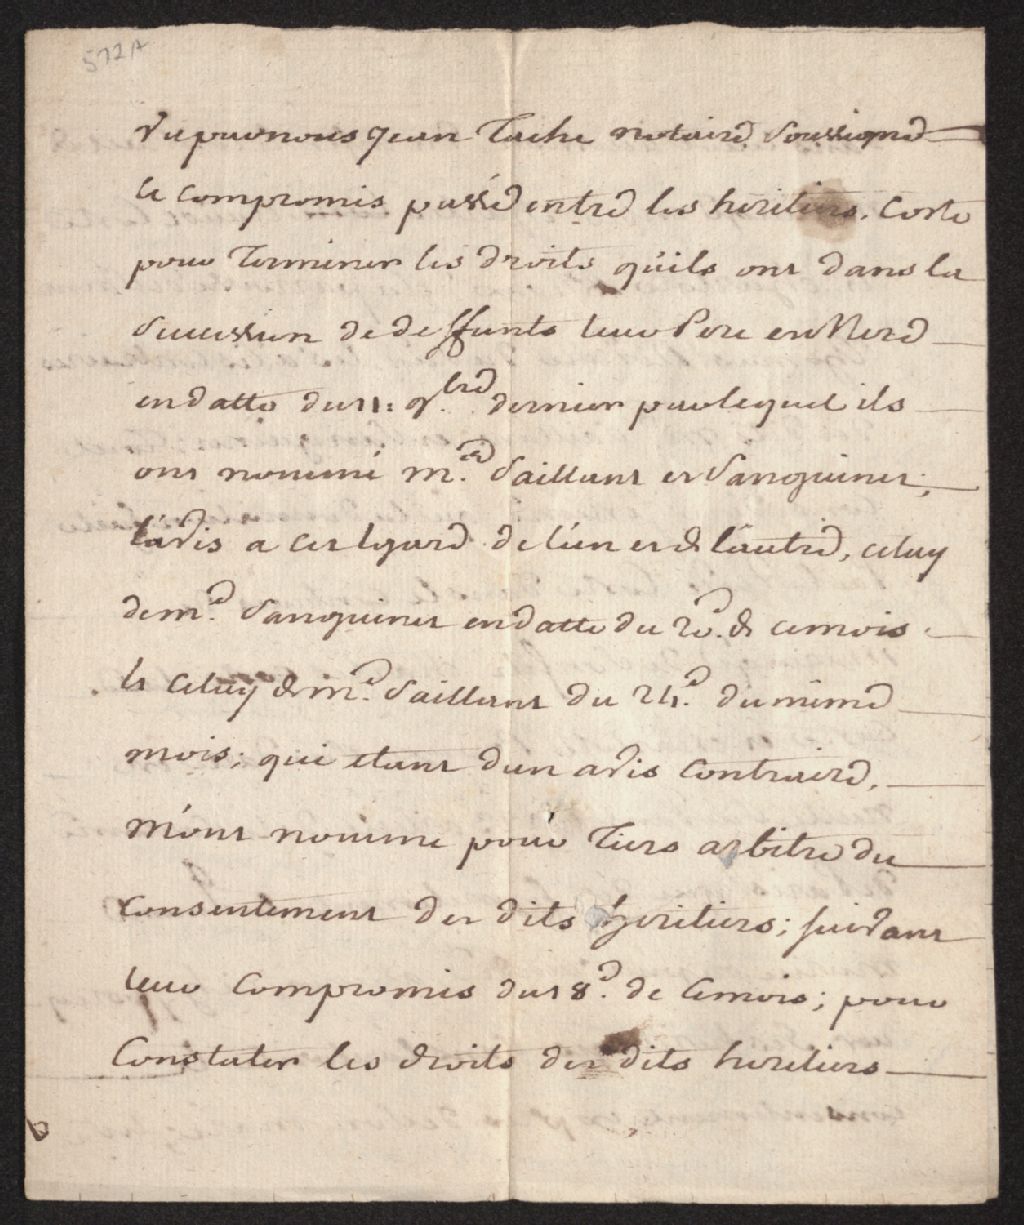 572A
Vu par nous Jean Taché notaire Soussigné
le compromis passé entre les heritiers, Corte
pour Terminer les droits qúils ont dans la
Succession de deffunts leur Pere en Mere
en datte du 11: 9.bre dernier par lequel ils
ont nommé M.rs Saillant et Sanguinet,
L'avis a cet Egard de lún et de láutre, celuy
de m.r Sanguinet en datte du 20.e de ce mois
Et celuy de m.r Saillant du 24.e du même
mois; qui etant d'un avis Contraire,
M'ont nommé pour Tiers arbitre du
Consentement des dits heritiers; suivant
leur Compromis du 18.e de ce mois; pour
Constater les droits des dits heritiers